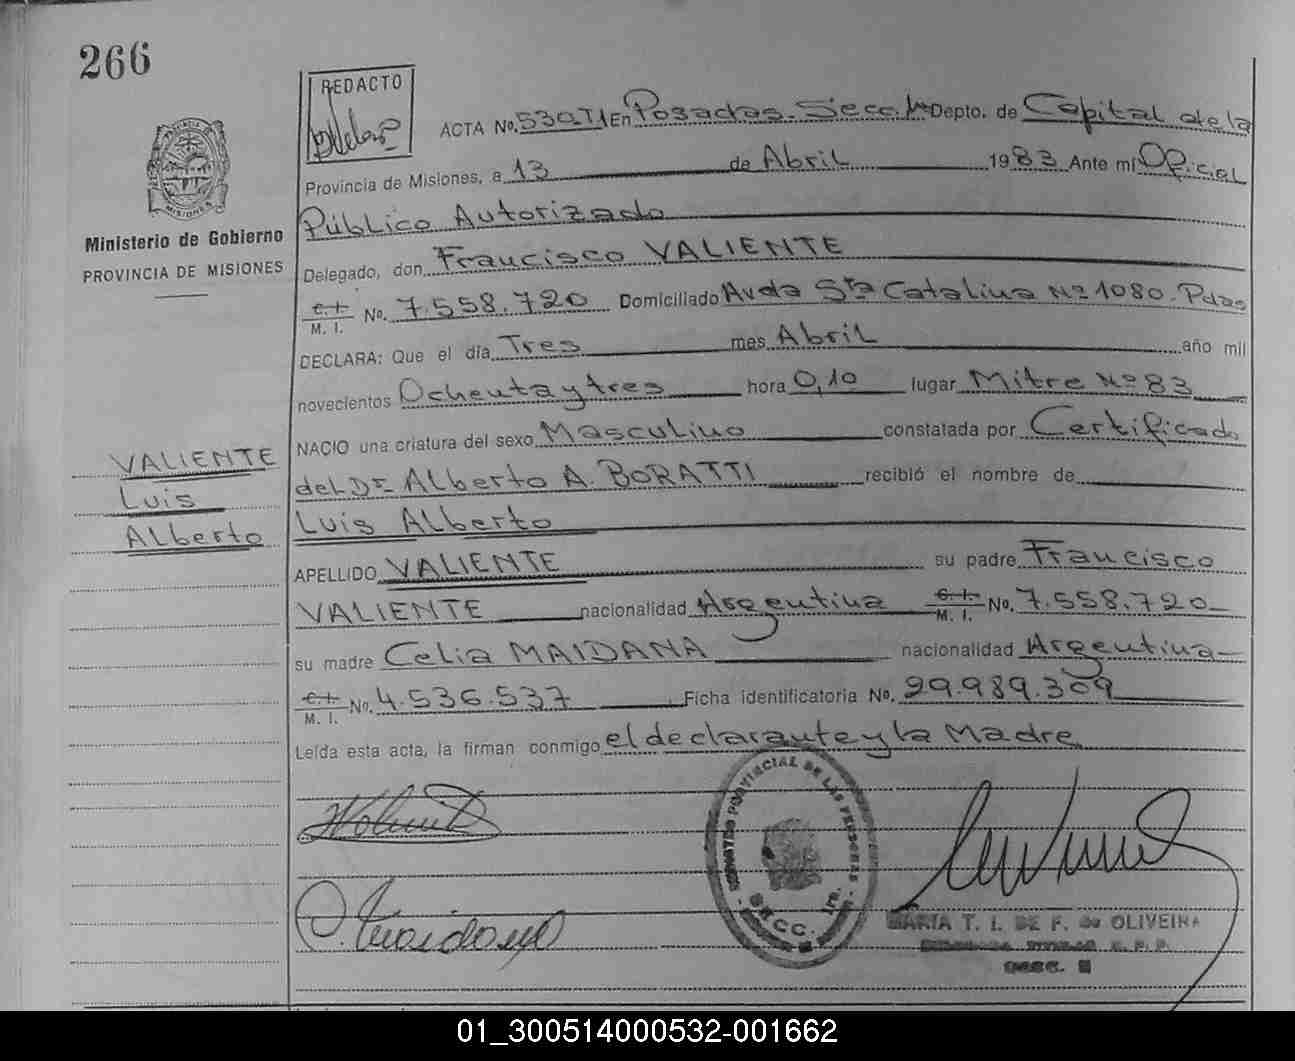 266
REDACTO
ACTA No. 530 T1 En Posadas. Secc. 1ª Depto. de Capital de la
Provincia de Misiones, a 13 de Abril 1983 Ante mí Oficial
Público Autorizado
Ministerio de Gobierno
PROVINCIA DE MISIONES
Delegado, don Francisco VALIENTE
C. I.
M. I. No. 7.558.720 Domiciliado Avda Sta Catalina Nº 1080. Pdas
DECLARA: Que el día Tres mes Abril año mil
novecientos Ochenta y tres hora 0,10 lugar Mitre Nº 83
NACIO una criatura del sexo Masculino constatada por Certificado
del Dr Alberto A. BORATTI recibió el nombre de
Luis Alberto
VALIENTE
Luis
Alberto
APELLIDO VALIENTE su padre Francisco
VALIENTE nacionalidad Argentina C. I.
M. I. No. 7.558.720
su madre Celia MAIDANA nacionalidad Argentina
C. I.
M. I. No. 4.536.537 Ficha identificatoria No. 29.989.309
Leída esta acta, la firman conmigo el declarante y la Madre
PROVINCIAL DE LAS PERSONAS
SECC. 1ra.
MARIA T. I. DE F. de OLIVEIRA
01_300514000532-001662